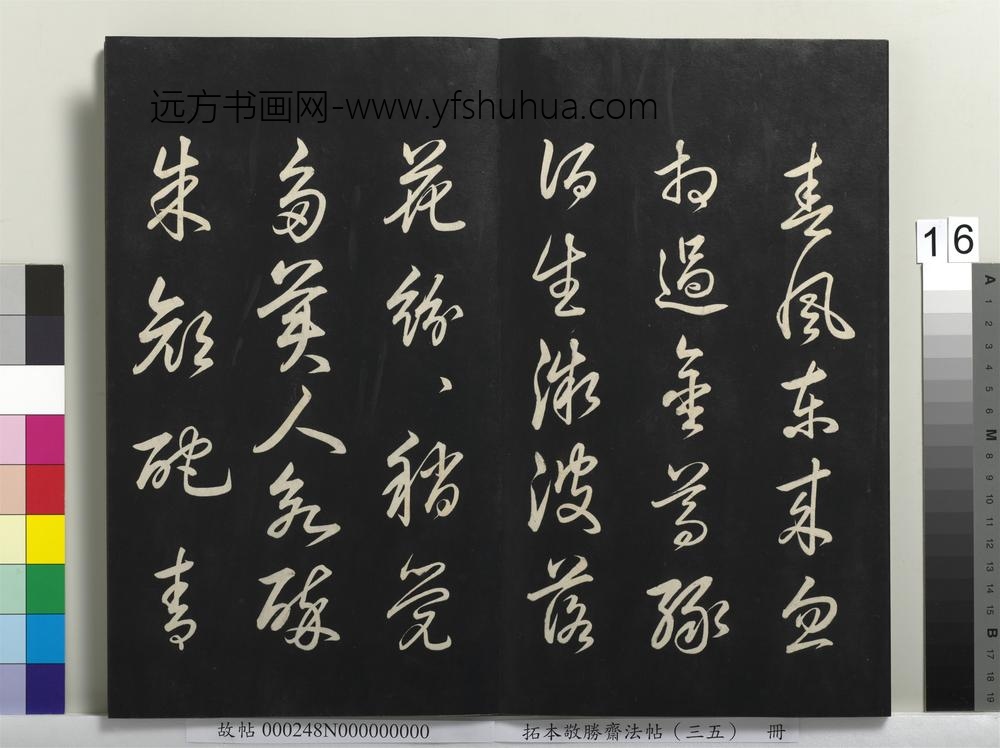 远方书画网-www.yfshuhua.com
春風東来忽
相過金尊綠
酒生微波落
花紛〻稍覺
多美人欲醉
朱顏酡青
16
A
1
2
3
4
5
6
M
8
9
10
11
12
13
14
15
B
17
18
19
故帖 000248N000000000
拓本敬勝齋法帖（三五） 冊